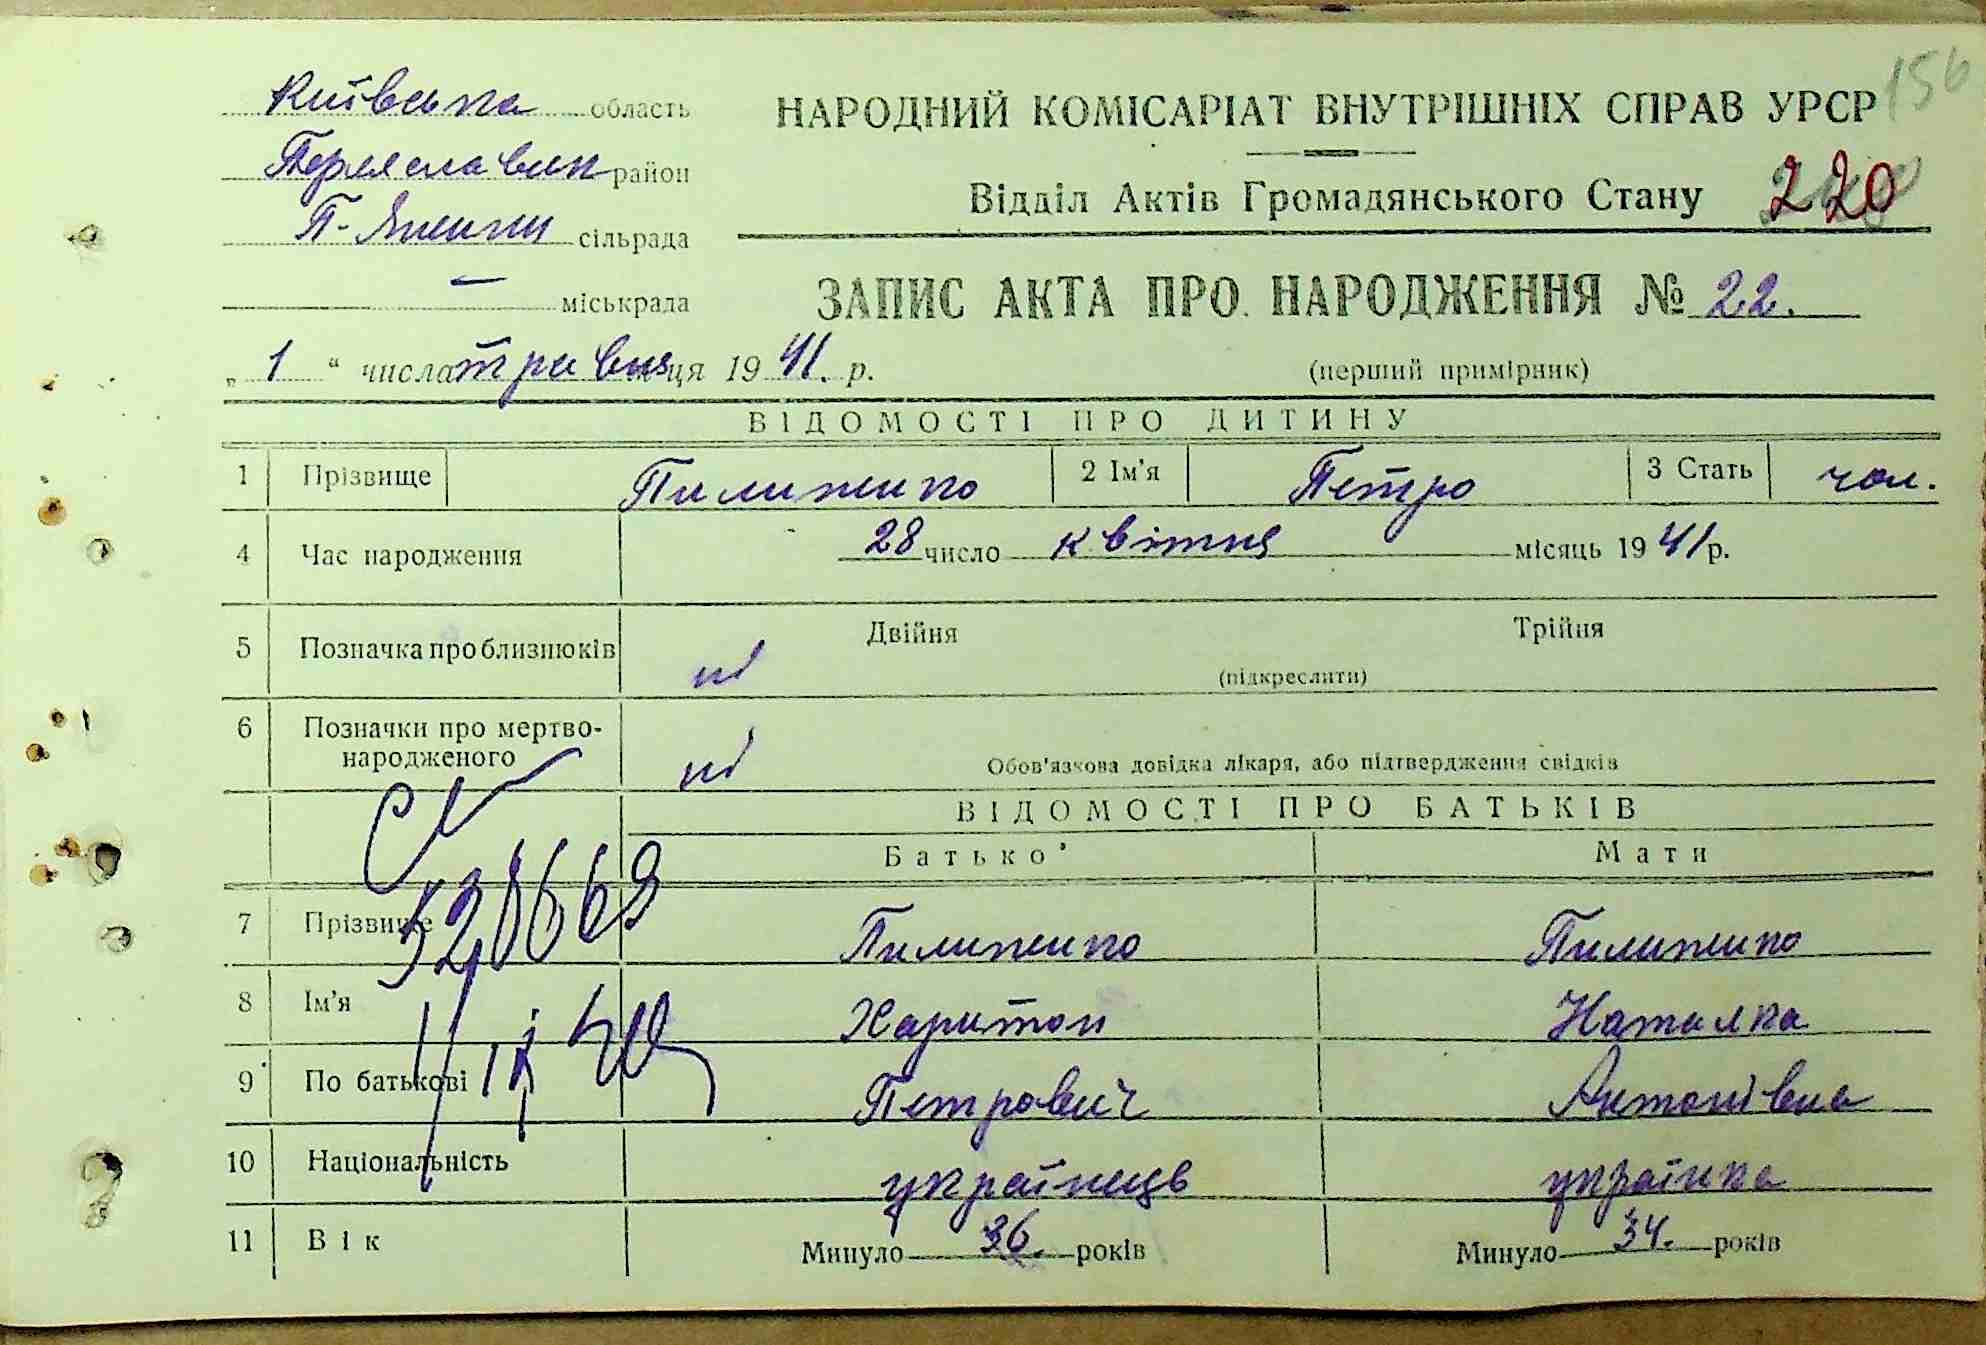 Київська область
НАРОДНИЙ КОМІСАРІАТ ВНУТРІШНІХ СПРАВ УРСР
156
район
Відділ Актів Громадянського Стану 220
сільрада
— міськрада
ЗАПИС АКТА ПРО НАРОДЖЕННЯ № 22.
„ 1 “ числа травня ця 1941. р.
(перший примірник)
ВІДОМОСТІ ПРО ДИТИНУ
1 Прізвище Пилипенко 2 Ім’я Петро 3 Стать чол.
4 Час народження 28 число квітня місяць 1941 р.
5 Позначка про близнюків ні Двійня Трійня
(підкреслити)
6 Позначки про мертво-
народженого ні Обов'язкова довідка лікаря, або підтвердження свідків
ВІДОМОСТІ ПРО БАТЬКІВ
Батько Мати
7 Прізвище Пилипенко Пилипенко
8 Ім’я Харитон Наталка
9 По батькові Петрович Антонівна
10 Національність українець українка
11 Вік Минуло 36. років Минуло 34. років